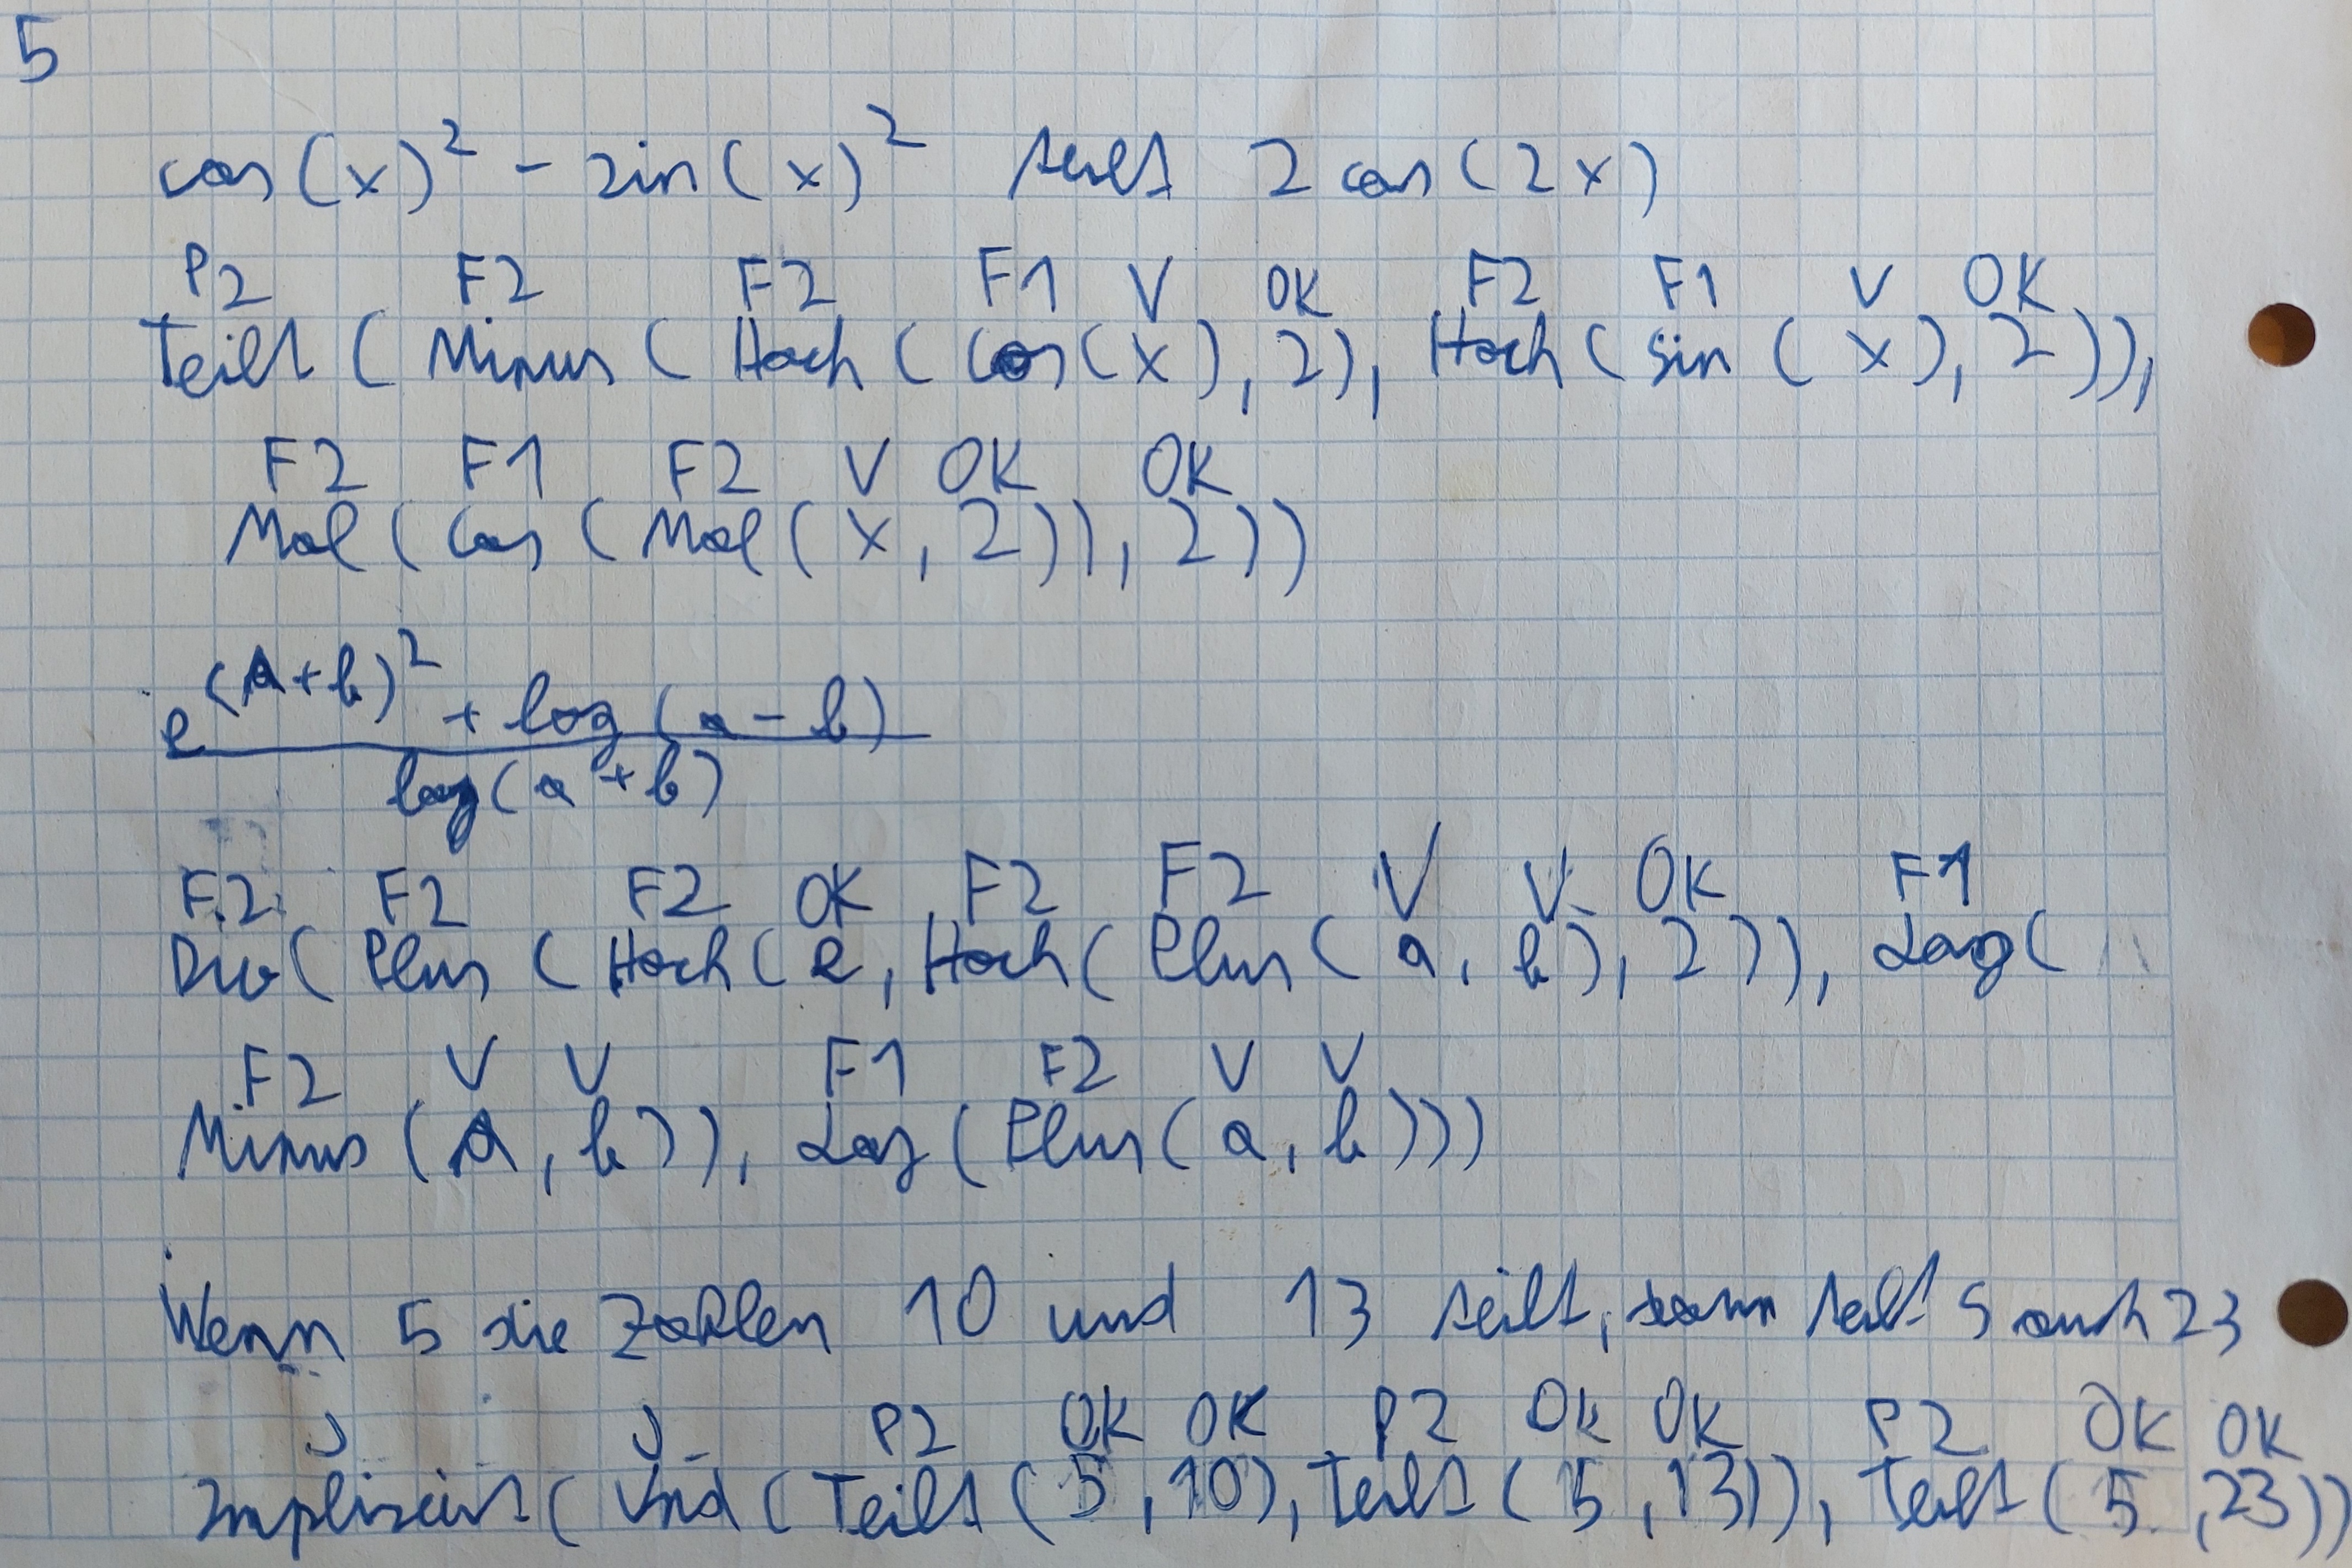 5
cos(x)² - sin(x)² teilt 2 cos(2x)
P2 F2 F2 F1 V OK F2 F1 V OK
Teilt(Minus(Hoch(Cos(x),2),Hoch(Sin(x),2)),
F2 F1 F2 V OK OK
Mal(Cos(Mal(x,2)),2))
e^(a+b)² + log(a-b)
log(a+b)
F2 F2 F2 OK F2 F2 V V OK F1
Div(Plus(Hoch(e,Hoch(Plus(a,b),2)),Log(
F2 V V F1 F2 V V
Minus(a,b)),Log(Plus(a,b)))
Wenn 5 die Zahlen 10 und 13 teilt, dann teilt 5 auch 23
J J P2 OK OK P2 OK OK P2 OK OK
Impliziert(Und(Teilt(5,10),Teilt(5,13)),Teilt(5,23))